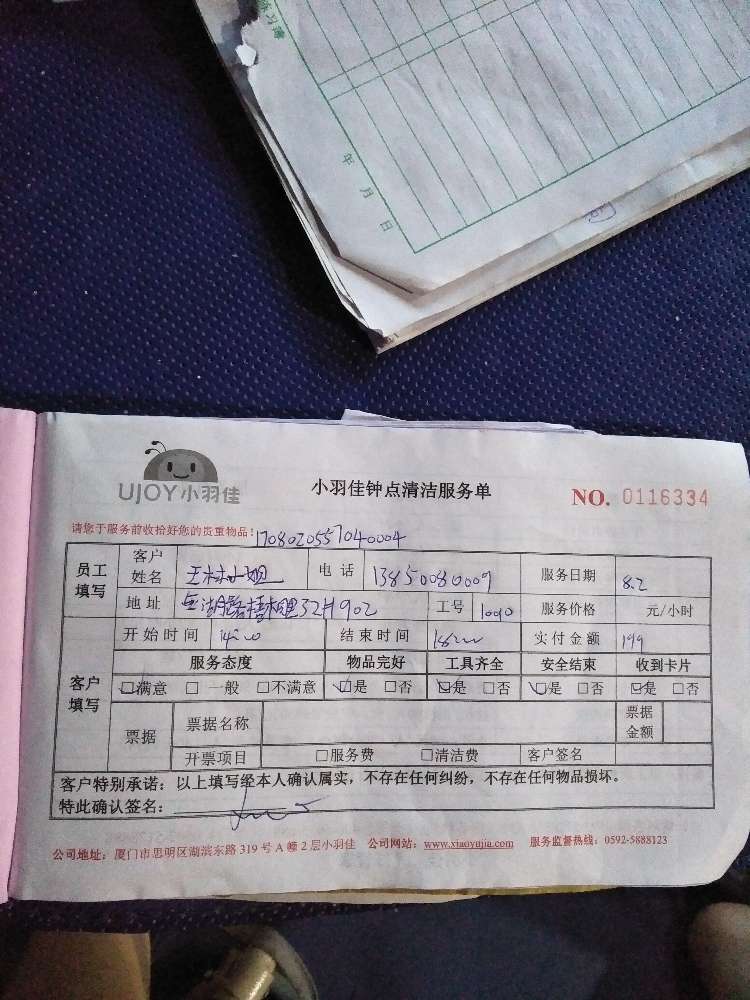 年 月 日
UJOY小羽佳
小羽佳钟点清洁服务单
NO. 0116334
请您于服务前收拾好您的贵重物品!
1708020557040004
员工填写 客户姓名 王林小姐 电话 13850080009 服务日期 8.2
地址 32H902 工号 1090 服务价格 元/小时
客户填写 开始时间 结束时间 实付金额 199
服务态度 物品完好 工具齐全 安全结束 收到卡片
☑满意 □一般 □不满意 ☑是 □否 ☑是 □否 ☑是 □否 ☑是 □否
票据 票据名称 票据金额
开票项目 □服务费 □清洁费 客户签名
客户特别承诺：以上填写经本人确认属实，不存在任何纠纷，不存在任何物品损坏。
特此确认签名：
公司地址：厦门市思明区湖滨东路 319 号 A 幢 2 层小羽佳 公司网站：www.xiaoyujia.com 服务监督热线：0592-5888123